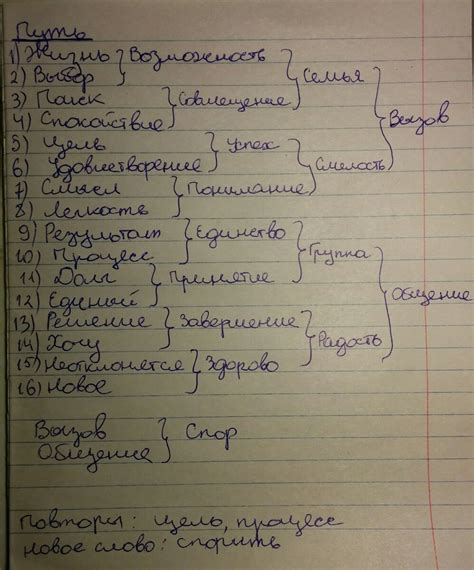 Путь
1) Жизнь } Возможность
2) Выбор
} Семья
3) Поиск } Совмещение
4) Спокойствие
} Вызов
5) Цель } Успех
6) Удовлетворение
} Смелость
7) Смысл } Понимание
8) Легкость
9) Результат } Единство
10) Процесс
} Группа
11) Долг } Принятие
12) Единый
} Общение
13) Решение } Завершение
14) Хочу
} Радость
15) Неотклоняться } Здорово
16) Новое
Вызов } Спор
Общение
Повторы: цель, процесс
Новое слово: спорить